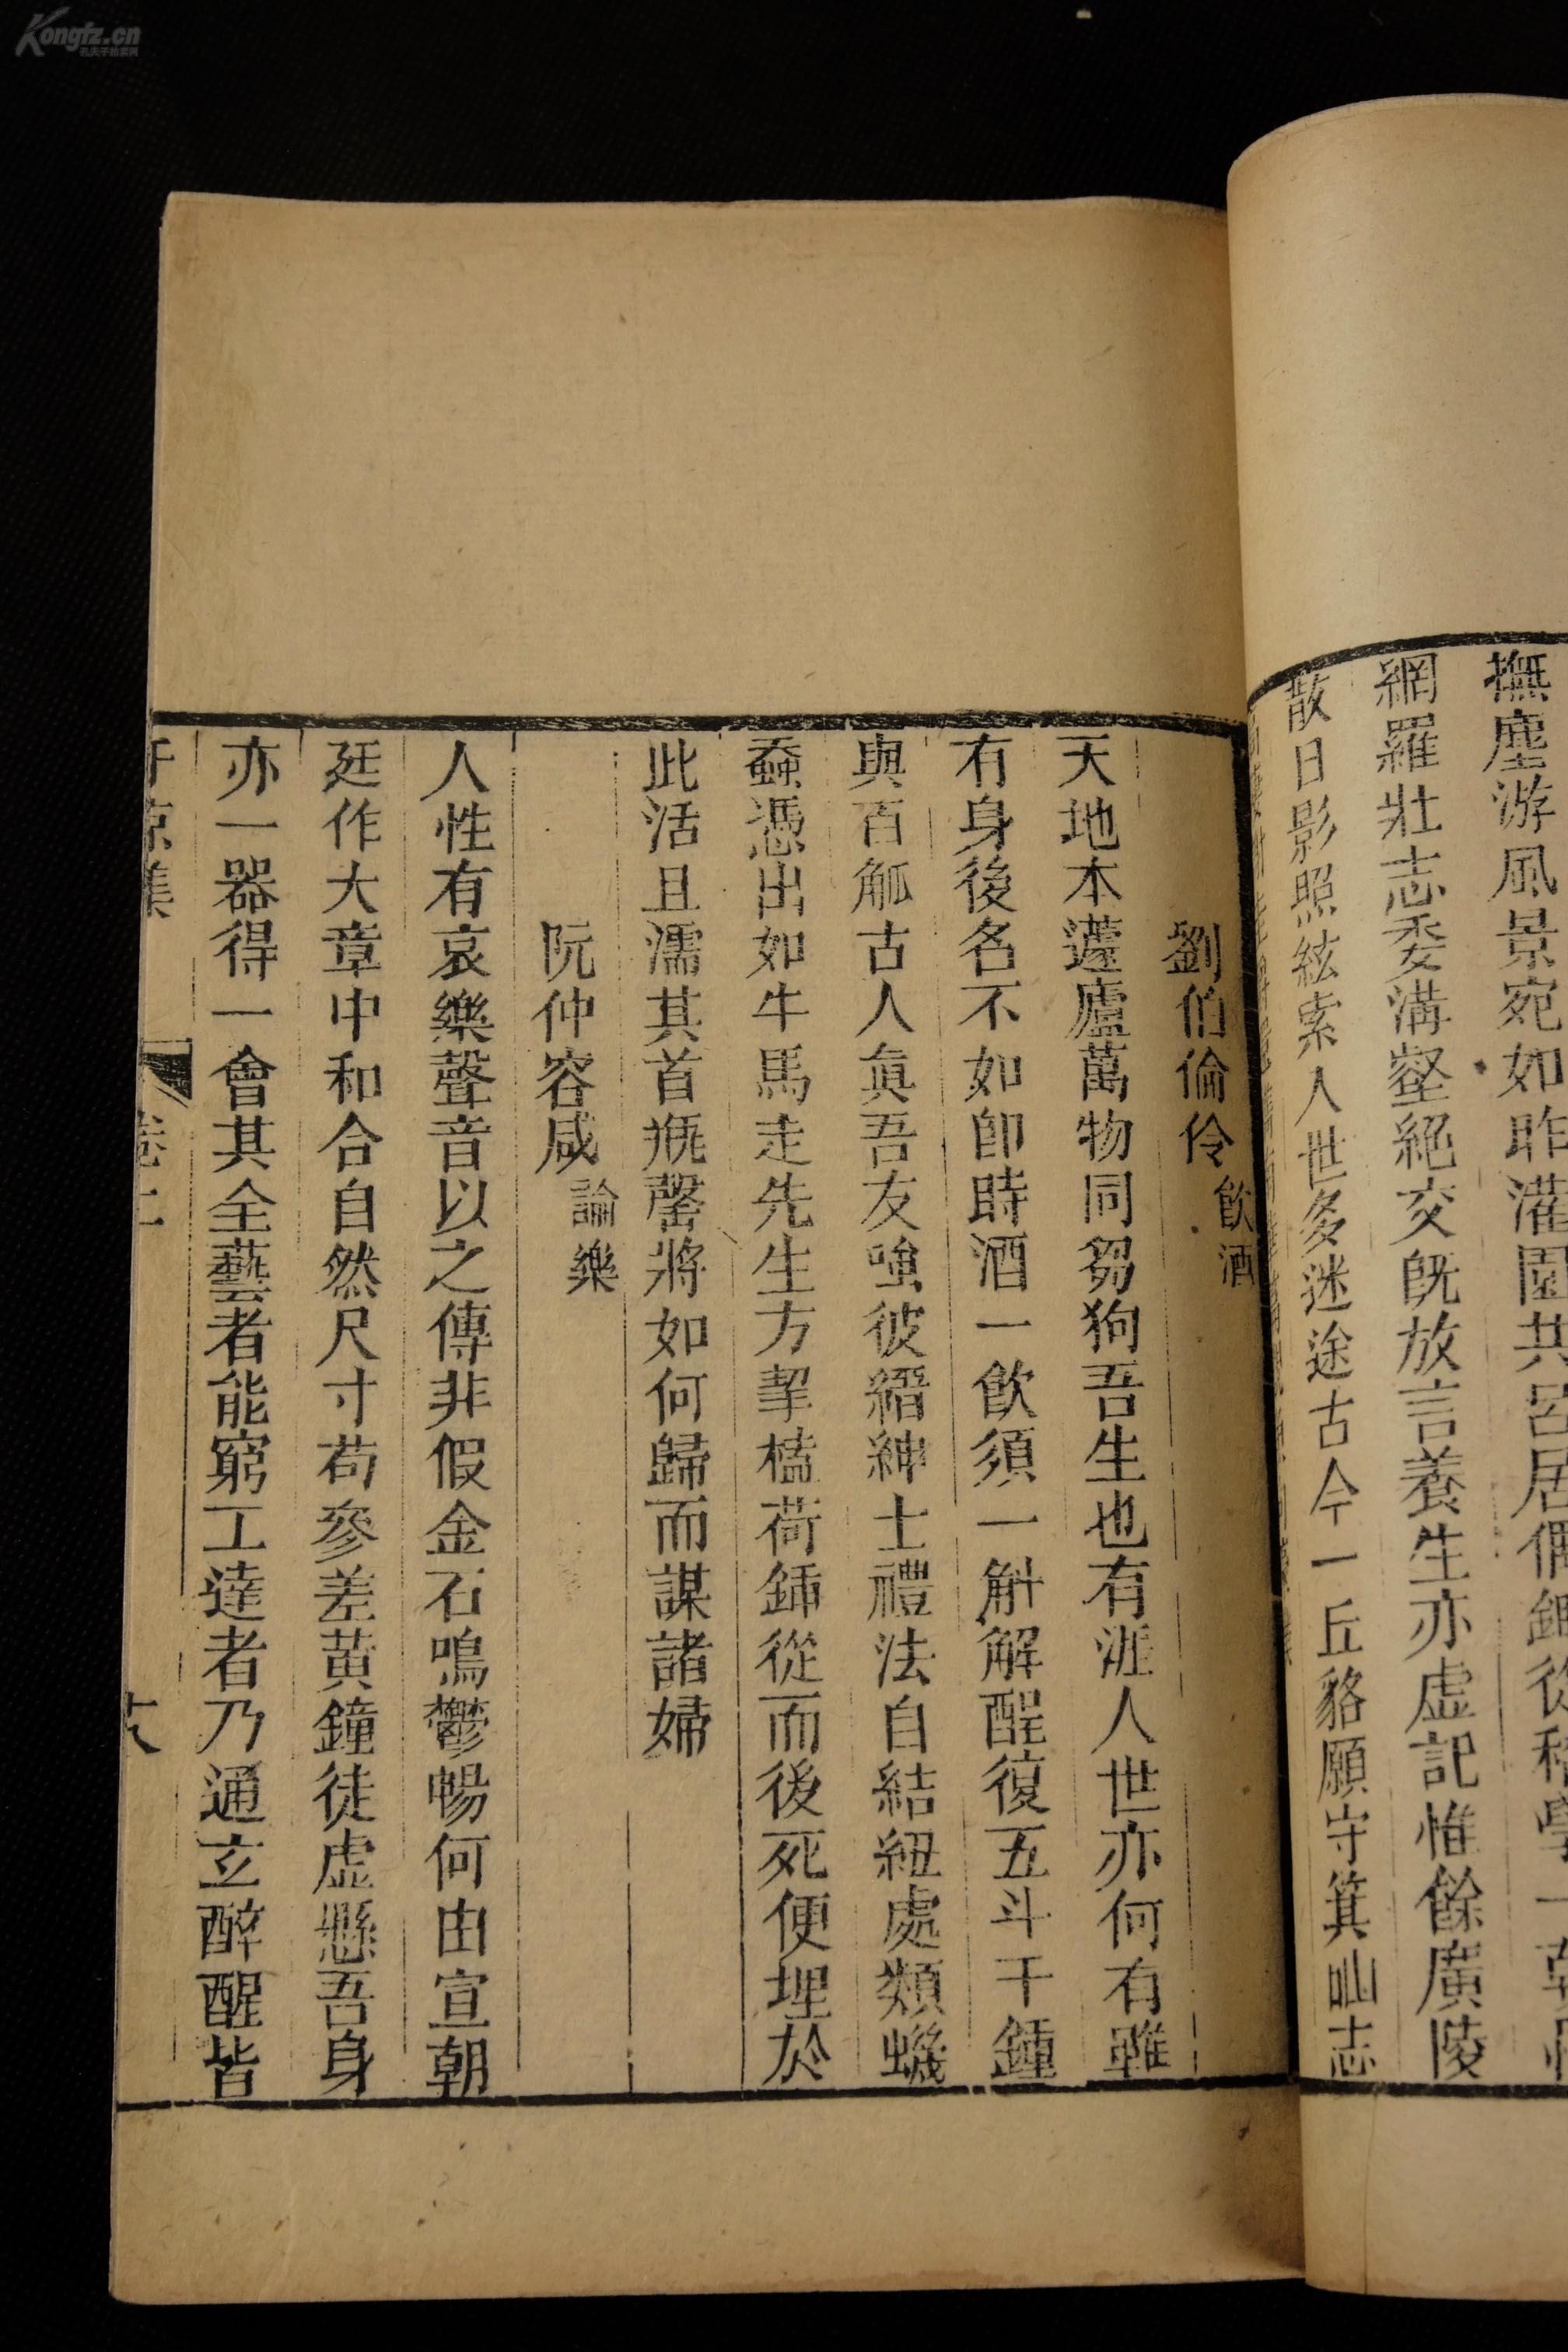 撫塵游風景宛如昨灌園共呂居偶鍜從稽學一朝
網羅壯志委溝壑絕交既放言養生亦虛記惟餘廣陵
散日影照絃索人世多迷途古今一丘貉願守箕山志
劉伯倫伶飲酒
天地本蘧廬萬物同芻狗吾生也有涯人世亦何有雖
有身後名不如卽時酒一飲須一斛解酲復五斗千鍾
與百觚古人真吾友嗤彼縉紳士禮法自結紐處類蟣
蝨憑出如牛馬走先生方挈榼荷鍤從而後死便埋於
此活且濡其首瓶罄將如何歸而謀諸婦
阮仲容咸論樂
人性有哀樂聲音以之傳非假金石鳴鬱暢何由宣朝
廷作大章中和合自然尺寸苟參差黄鐘徒虛懸吾身
亦一器得一會其全藝者能窮工達者乃通玄醉醒皆
Kongfz.cn